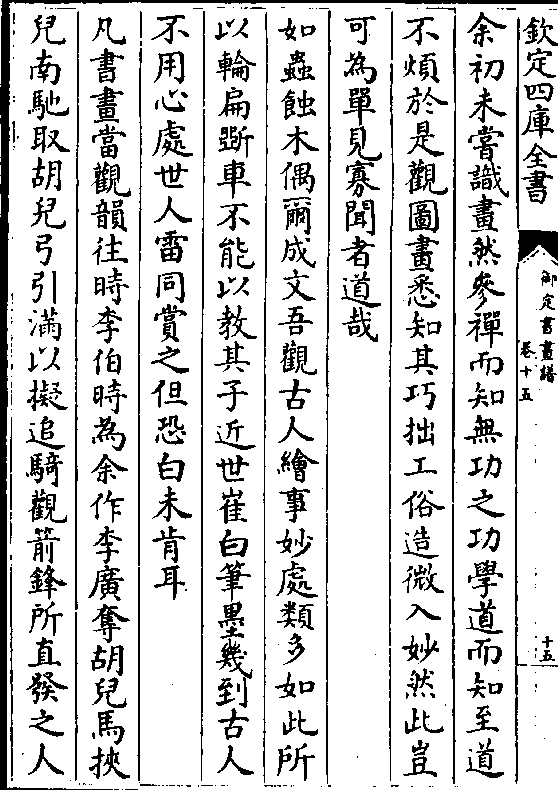 欽定四庫全書
御定書畫譜
卷十五
十五
余初未嘗識畫然參禪而知無功之功學道而知至道
不煩於是觀圖畫悉知其巧拙工俗造微入妙然此豈
可為單見寡聞者道哉
如蟲蝕木偶爾成文吾觀古人繪事妙處類多如此所
以輪扁斵車不能以教其子近世崔白筆墨幾到古人
不用心處世人雷同賞之但恐白未肯耳
凡書畫當觀韻往時李伯時為余作李廣奪胡兒馬挾
兒南馳取胡兒弓引滿以擬追騎觀箭鋒所直發之人